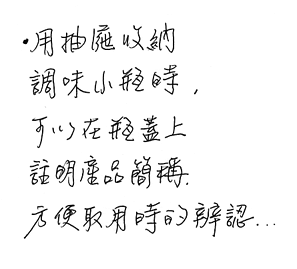 •用抽屜收納
調味小瓶時，
可以在瓶蓋上
註明產品簡稱.
方便取用時的辨認...